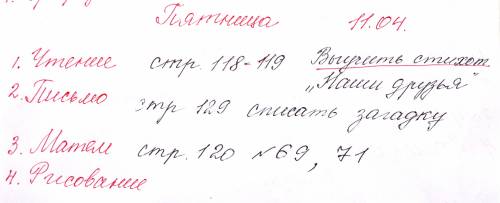 Пятница 11.04.
1. Чтение стр. 118-119 Выучить стихот.
"Наши друзья"
2. Письмо стр 129 списать загадку
3. Матем стр. 120 №69, 71
4. Рисование